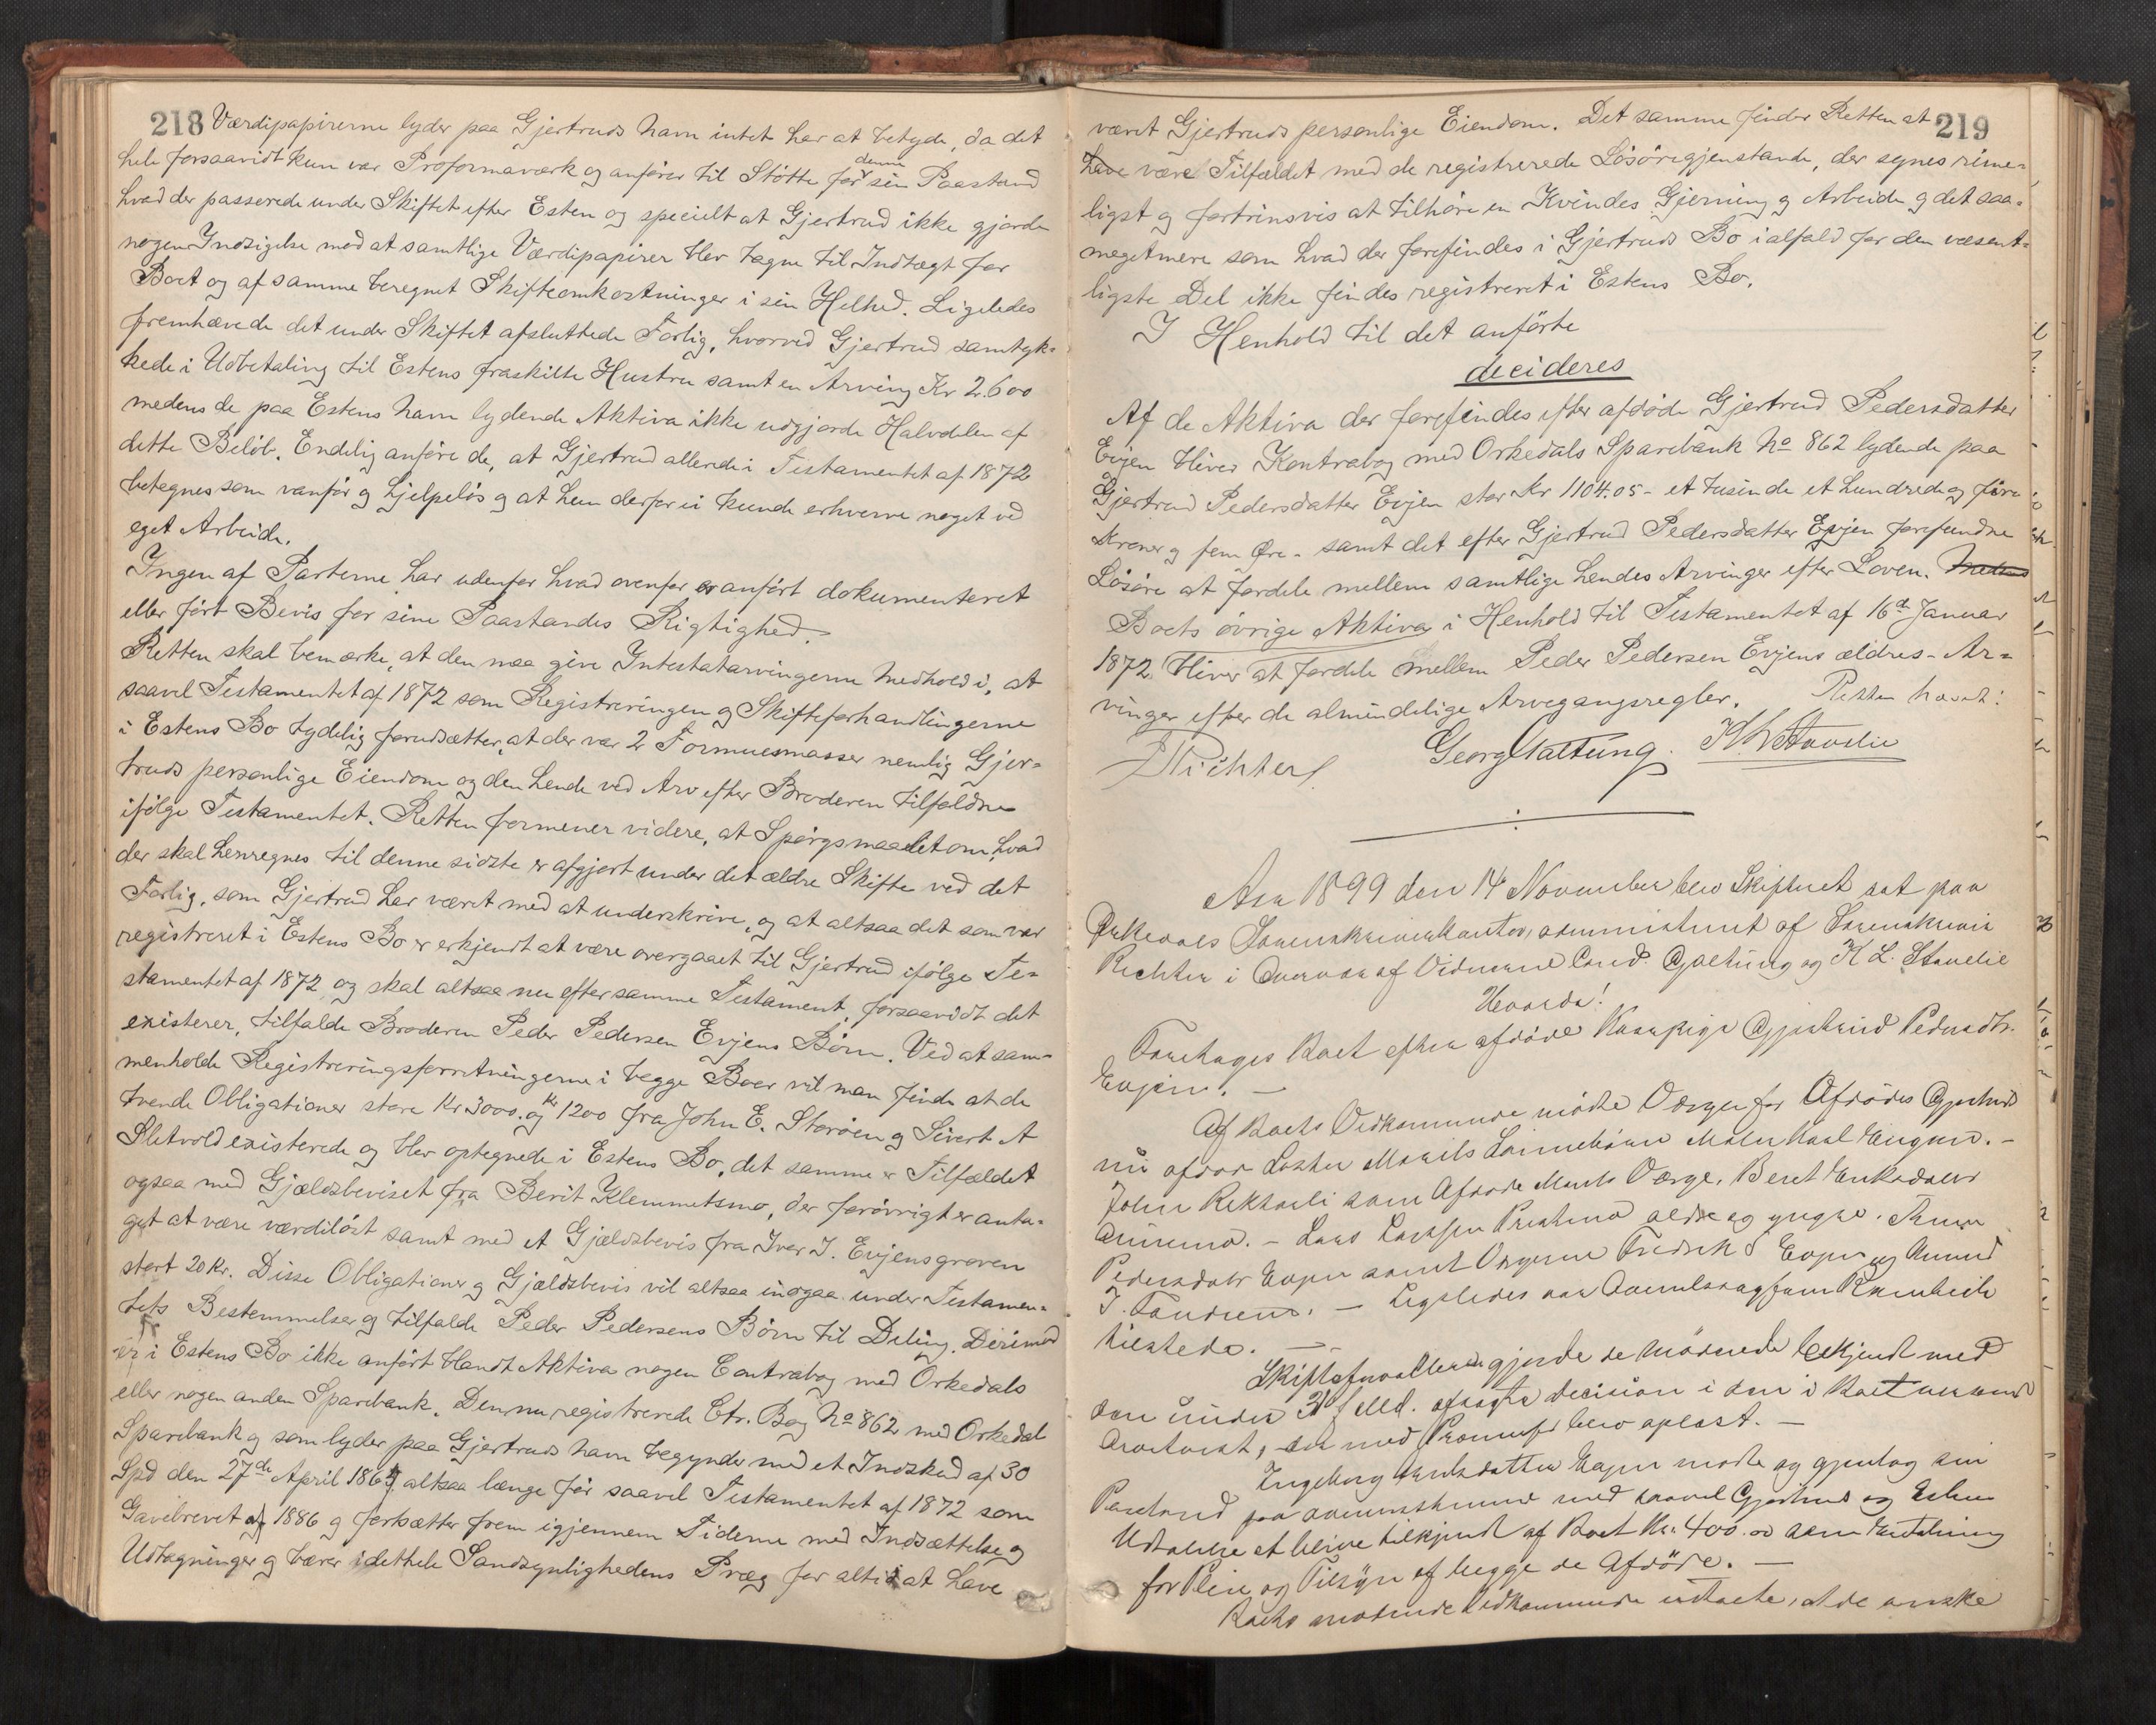 218 Værdipapirerne lyder paa Gjertruds Navn intet har at betyde, da det
hele forsaavidt kun var Proformaværk og anfører til Støtte for denne sin Paastand
hvad der passerede under Skiftet efter Esten og specielt at Gjertrud ikke gjorde
nogen Indsigelse mod at samtlige Værdipapirer blev tagne til Indtægt for
Boet og af samme beregnet Skifteomkostninger i sin Helhed. Ligeledes
fremhæve de det under Skiftet afsluttede Forlig, hvorved Gjertrud samtyk-
kede i Udbetaling til Estens fraskilte Hustru samt en Arving Kr 2600
medens de paa Estens Navn lydende Aktiva ikke udgjorde Halvdelen af
dette Beløb. Endelig anføre de, at Gjertrud allerede i Testamentet af 1872
betegnes som vanfør og hjelpeløs og at hun derfor ei kunde erhverve noget ved
eget Arbeide.
Ingen af Parterne har udenfor hvad ovenfor er anført dokumenteret
eller ført Bevis for sine Paastandes Rigtighed.
Retten skal bemærke, at den maa give Intestatarvingerne Medhold i, at
saavel Testamentet af 1872 som Registreringen og Skifteforhandlingerne
i Estens Bo tydelig forudsætter, at der var 2 Formuesmasser nemlig Gjer-
truds personlige Eiendom og den hende ved Arv efter Broderen tilfaldne
ifølge Testamentet. Retten formener videre, at Spørgsmaalet om, hvad
der skal henregnes til denne sidste er afgjort under det ældre Skifte ved det
Forlig, som Gjertrud har været med at underskrive, og at altsaa det som var
registreret i Estens Bo er erkjendt at være overgaaet til Gjertrud ifølge Te-
stamentet af 1872 og skal altsaa nu efter samme Testament, forsaavidt det
existerer, tilfalde Broderen Peder Pedersen Evjens Børn. Ved at sam-
menholde Registreringsforretningerne i begge Boer vil man finde at de
tvende Obligationer store Kr 3000. og Kr 1200 fra John E. Storøen og Sivert A
Sletvold existerede og blev optegnede i Estens Bo, det samme er Tilfældet
ogsaa med Gjældsbeviset fra Berit Klemmetsmo, der forøvrigt er anta-
get at være værdiløst samt med et Gjældsbevis fra Iver I. Evjensgraven
stort 20 Kr. Disse Obligationer og Gjældsbevis vil altsaa indgaa under Testamen-
tets Bestemmelser og tilfalde Peder Pedersens Børn til Deling. Derimod
er i Estens Bo ikke anført blandt Aktiva nogen Contrabog med Orkedals
eller nogen anden Sparebank. Den nu registrerede Ctr. Bog No 862 med Orkedals
Sparebank og som lyder paa Gjertruds Navn begynder med et Indskud af 30
Spd den 27de April 1867, altsaa længe før saavel Testamentet af 1872 som
Gavebrevet af 1886 og fortsætter frem igjennem Tiderne med Indsættelse og
Udtagninger og bærer idethele Sandsynlighedens Præg for altid at have
219
været Gjertruds personlige Eiendom. Det samme finder Retten at
have være Tilfældet med de registrerede Løsøregjenstande, der synes rime-
ligst og fortrinsvis at tilhøre en Kvindes Gjerning og Arbeide og det saa-
megetmere som hvad der forefindes i Gjertruds Bo ialfald for den væsent-
ligste Del ikke findes registreret i Estens Bo.
I Henhold til det anførte
decideres
Af de Aktiva der forefindes efter afdøde Gjertrud Pedersdatter
Evjen bliver Kontrabog med Orkedals Sparebank No 862 lydende paa
Gjertrud Pedersdatter Evjen stor Kr 1104.05 - et tusinde et hundrede og fire
Kroner og fem Øre - samt det efter Gjertrud Pedersdatter Evjen forefundne
Løsøre at fordele mellem samtlige hendes Arvinger efter Loven. Medens
Boets øvrige Aktiva i Henhold til Testamentet af 16de Januar
1872 bliver at fordele mellem Peder Pedersen Evjens ældres Ar-
vinger efter de almindelige Arvegangsregler. Retten hævet:
Richter Georg Galtung. K L Staveli
Aar 1899 den 14 November blev Skifteret sat paa
Orkedals Sorenskriverkontor, administreret af Sorenskriver
Richter i Overvær af Vidnerne Cand. Galtung og K L. Stavelie
Hvorda!
Foretages Boet efter afdøde Gjertrud Pedersdtr.
Evjen. -
Af Boets Vedkommende mødte Værge for Afdødes
nu afdøde Søster Marits
John som Afdøde Marits Værge, Beret
- Lars Larssen ældre og yngre.
Pedersdatr Evjen samt Fredrik Evjen og
- Ligeledes var
tilstede. -
Skifteforvalteren gjorde de mødende bekjendt med
den under 3 d. M. afsagte decision i den i Boet
der med Præmisser blev oplæst. -
Ingeborg Evjen mødte og gjentog sin
Paastand paa med saavel Gjertrud og Estens
Udtalelse at blive tilkjendt af Boet Kr. 400.00 som
for Pleie og Tilsyn af begge de Afdøde. -
Boets mødende Vedkommende udtalte, at de ønske